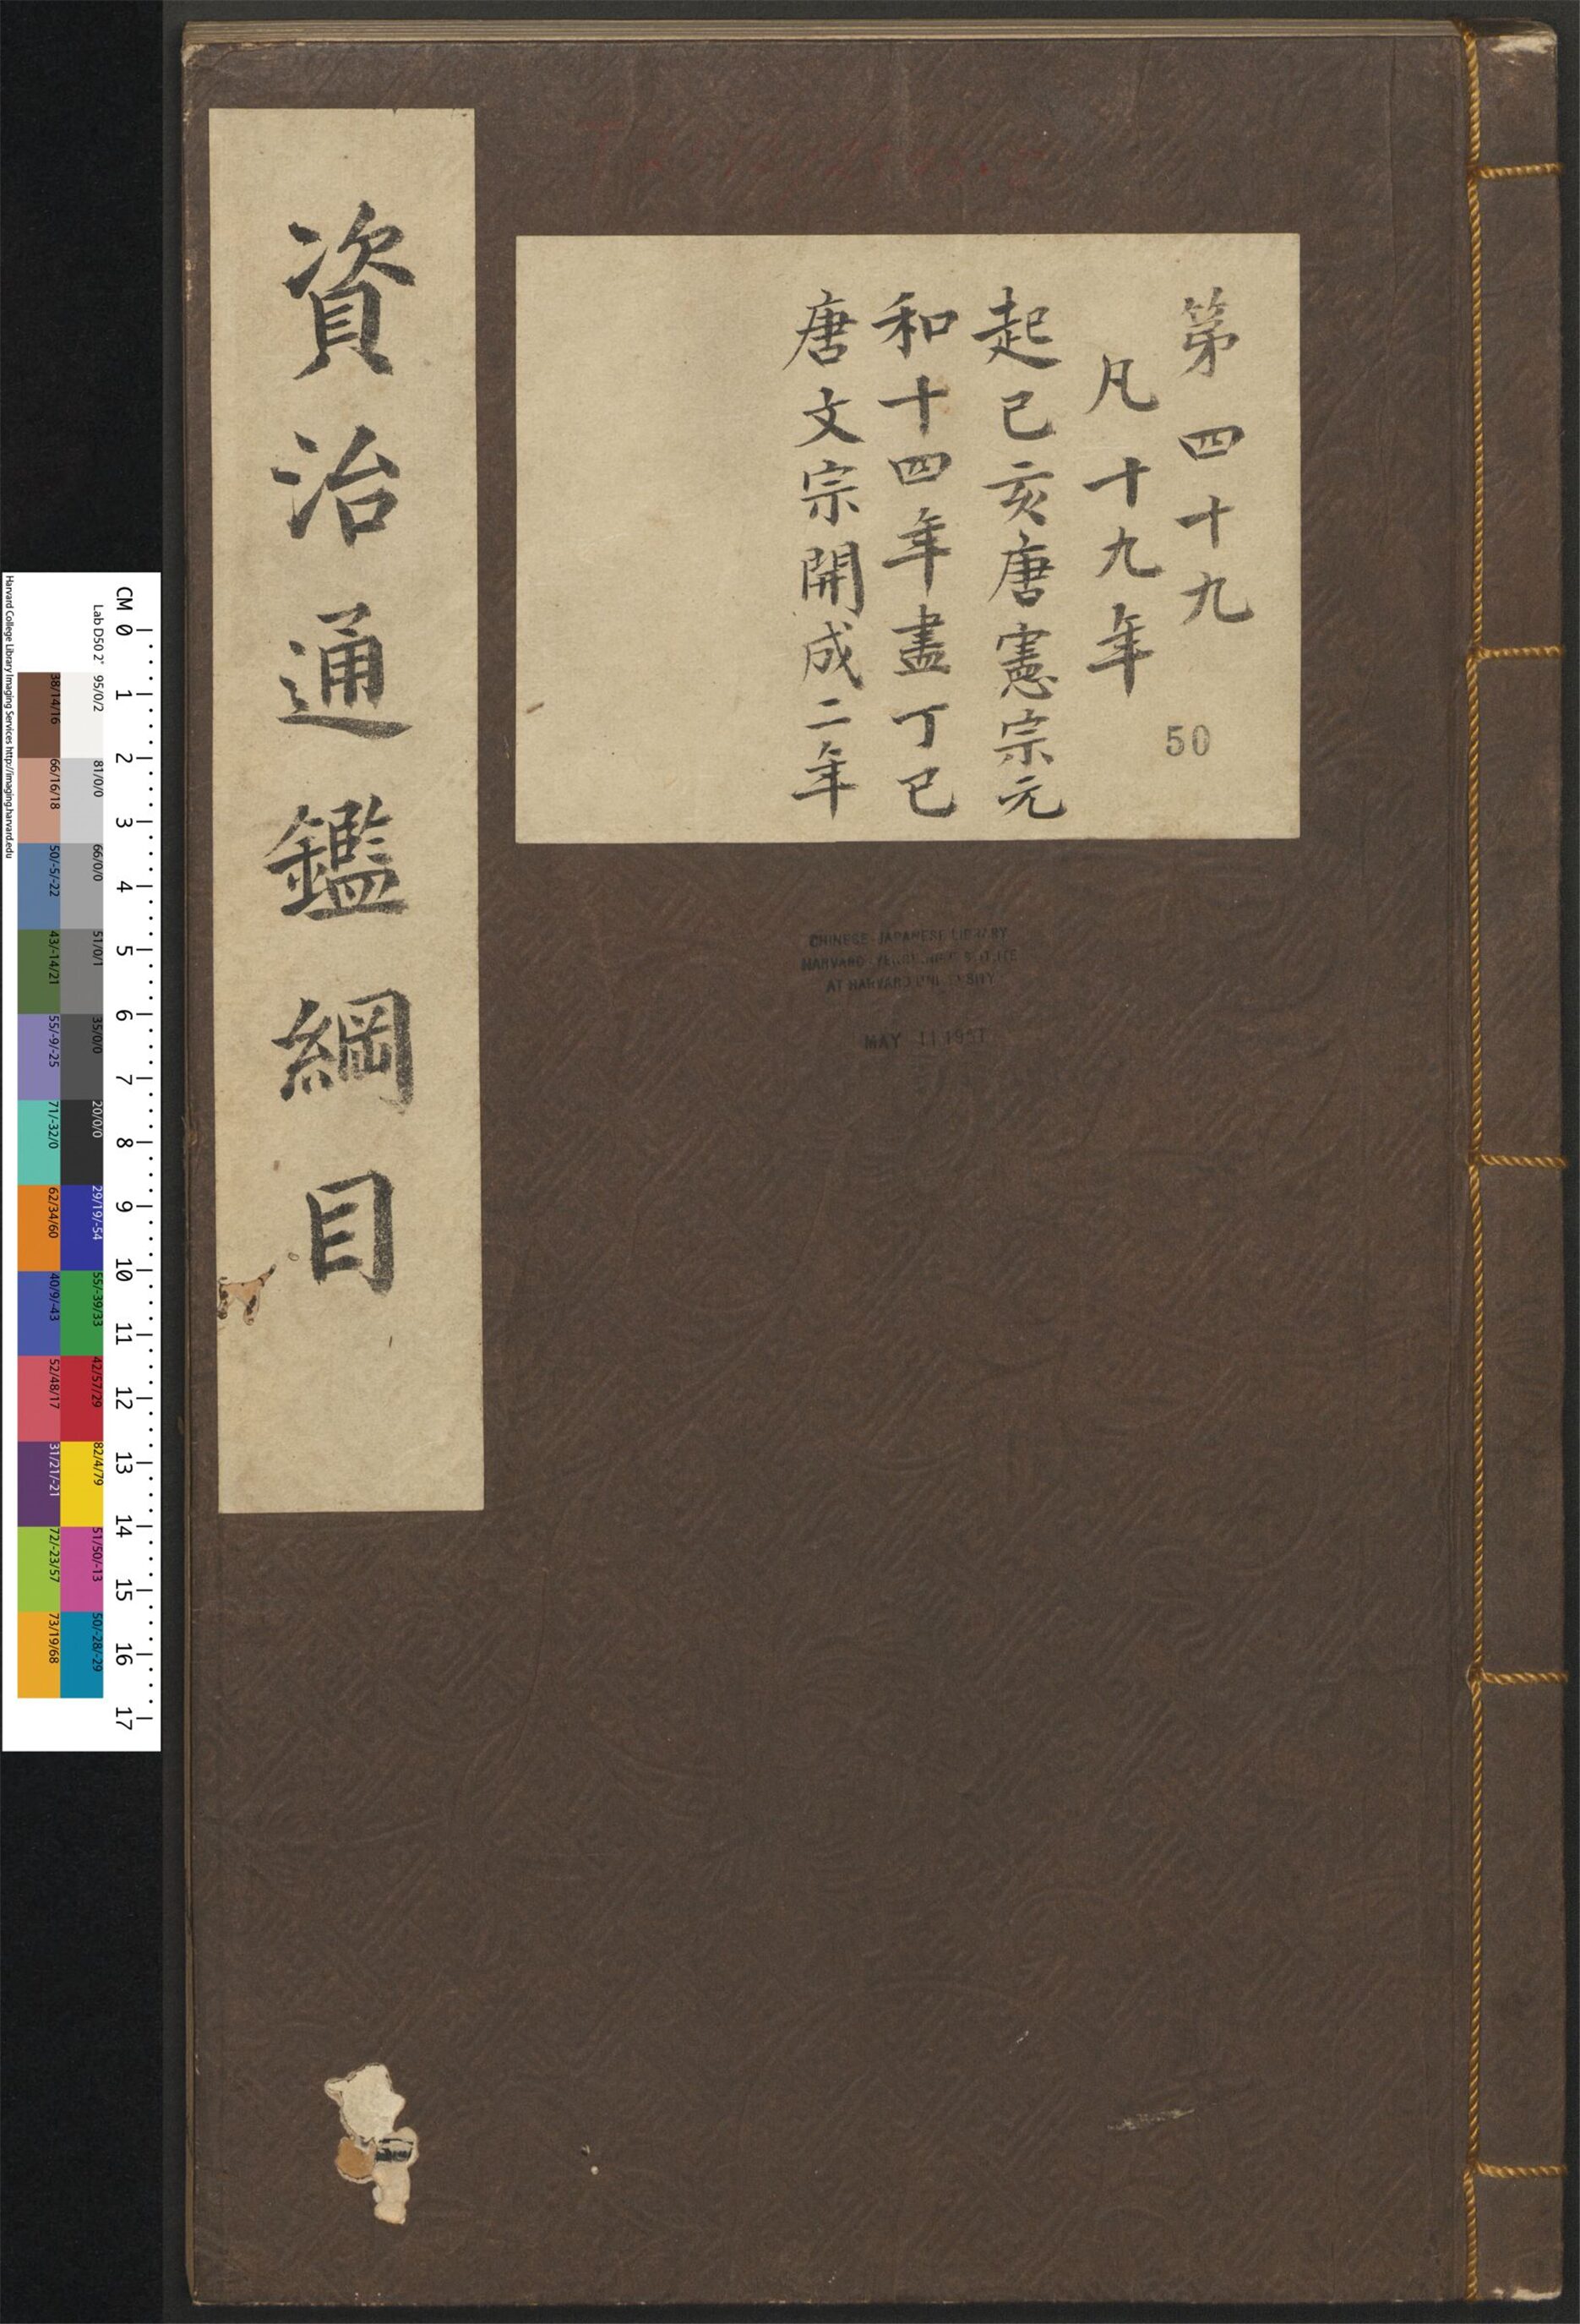 資治通鑑綱目
第四十九
凡十九年
起己亥唐憲宗元
和十四年盡丁巳
唐文宗開成二年
50
CHINESE-JAPANESE LIBRARY
HARVARD
AT HARVARD UNIVERSITY
MAY 11 1951
CM 0 1 2 3 4 5 6 7 8 9 10 11 12 13 14 15 16 17
Lab D50 2° 95/0/2 81/0/0 66/0/0 51/0/1 35/0/0 20/0/0 29/19/-54 55/-39/33 42/57/29 82/4/79 51/50/-13 50/-28/-29
38/14/16 66/16/18 50/-5/-22 43/-14/21 55/-9/-25 71/-32/0 62/34/60 40/9/-43 52/48/17 31/21/-21 72/-23/57 73/19/68
Harvard College Library Imaging Services http://imaging.harvard.edu